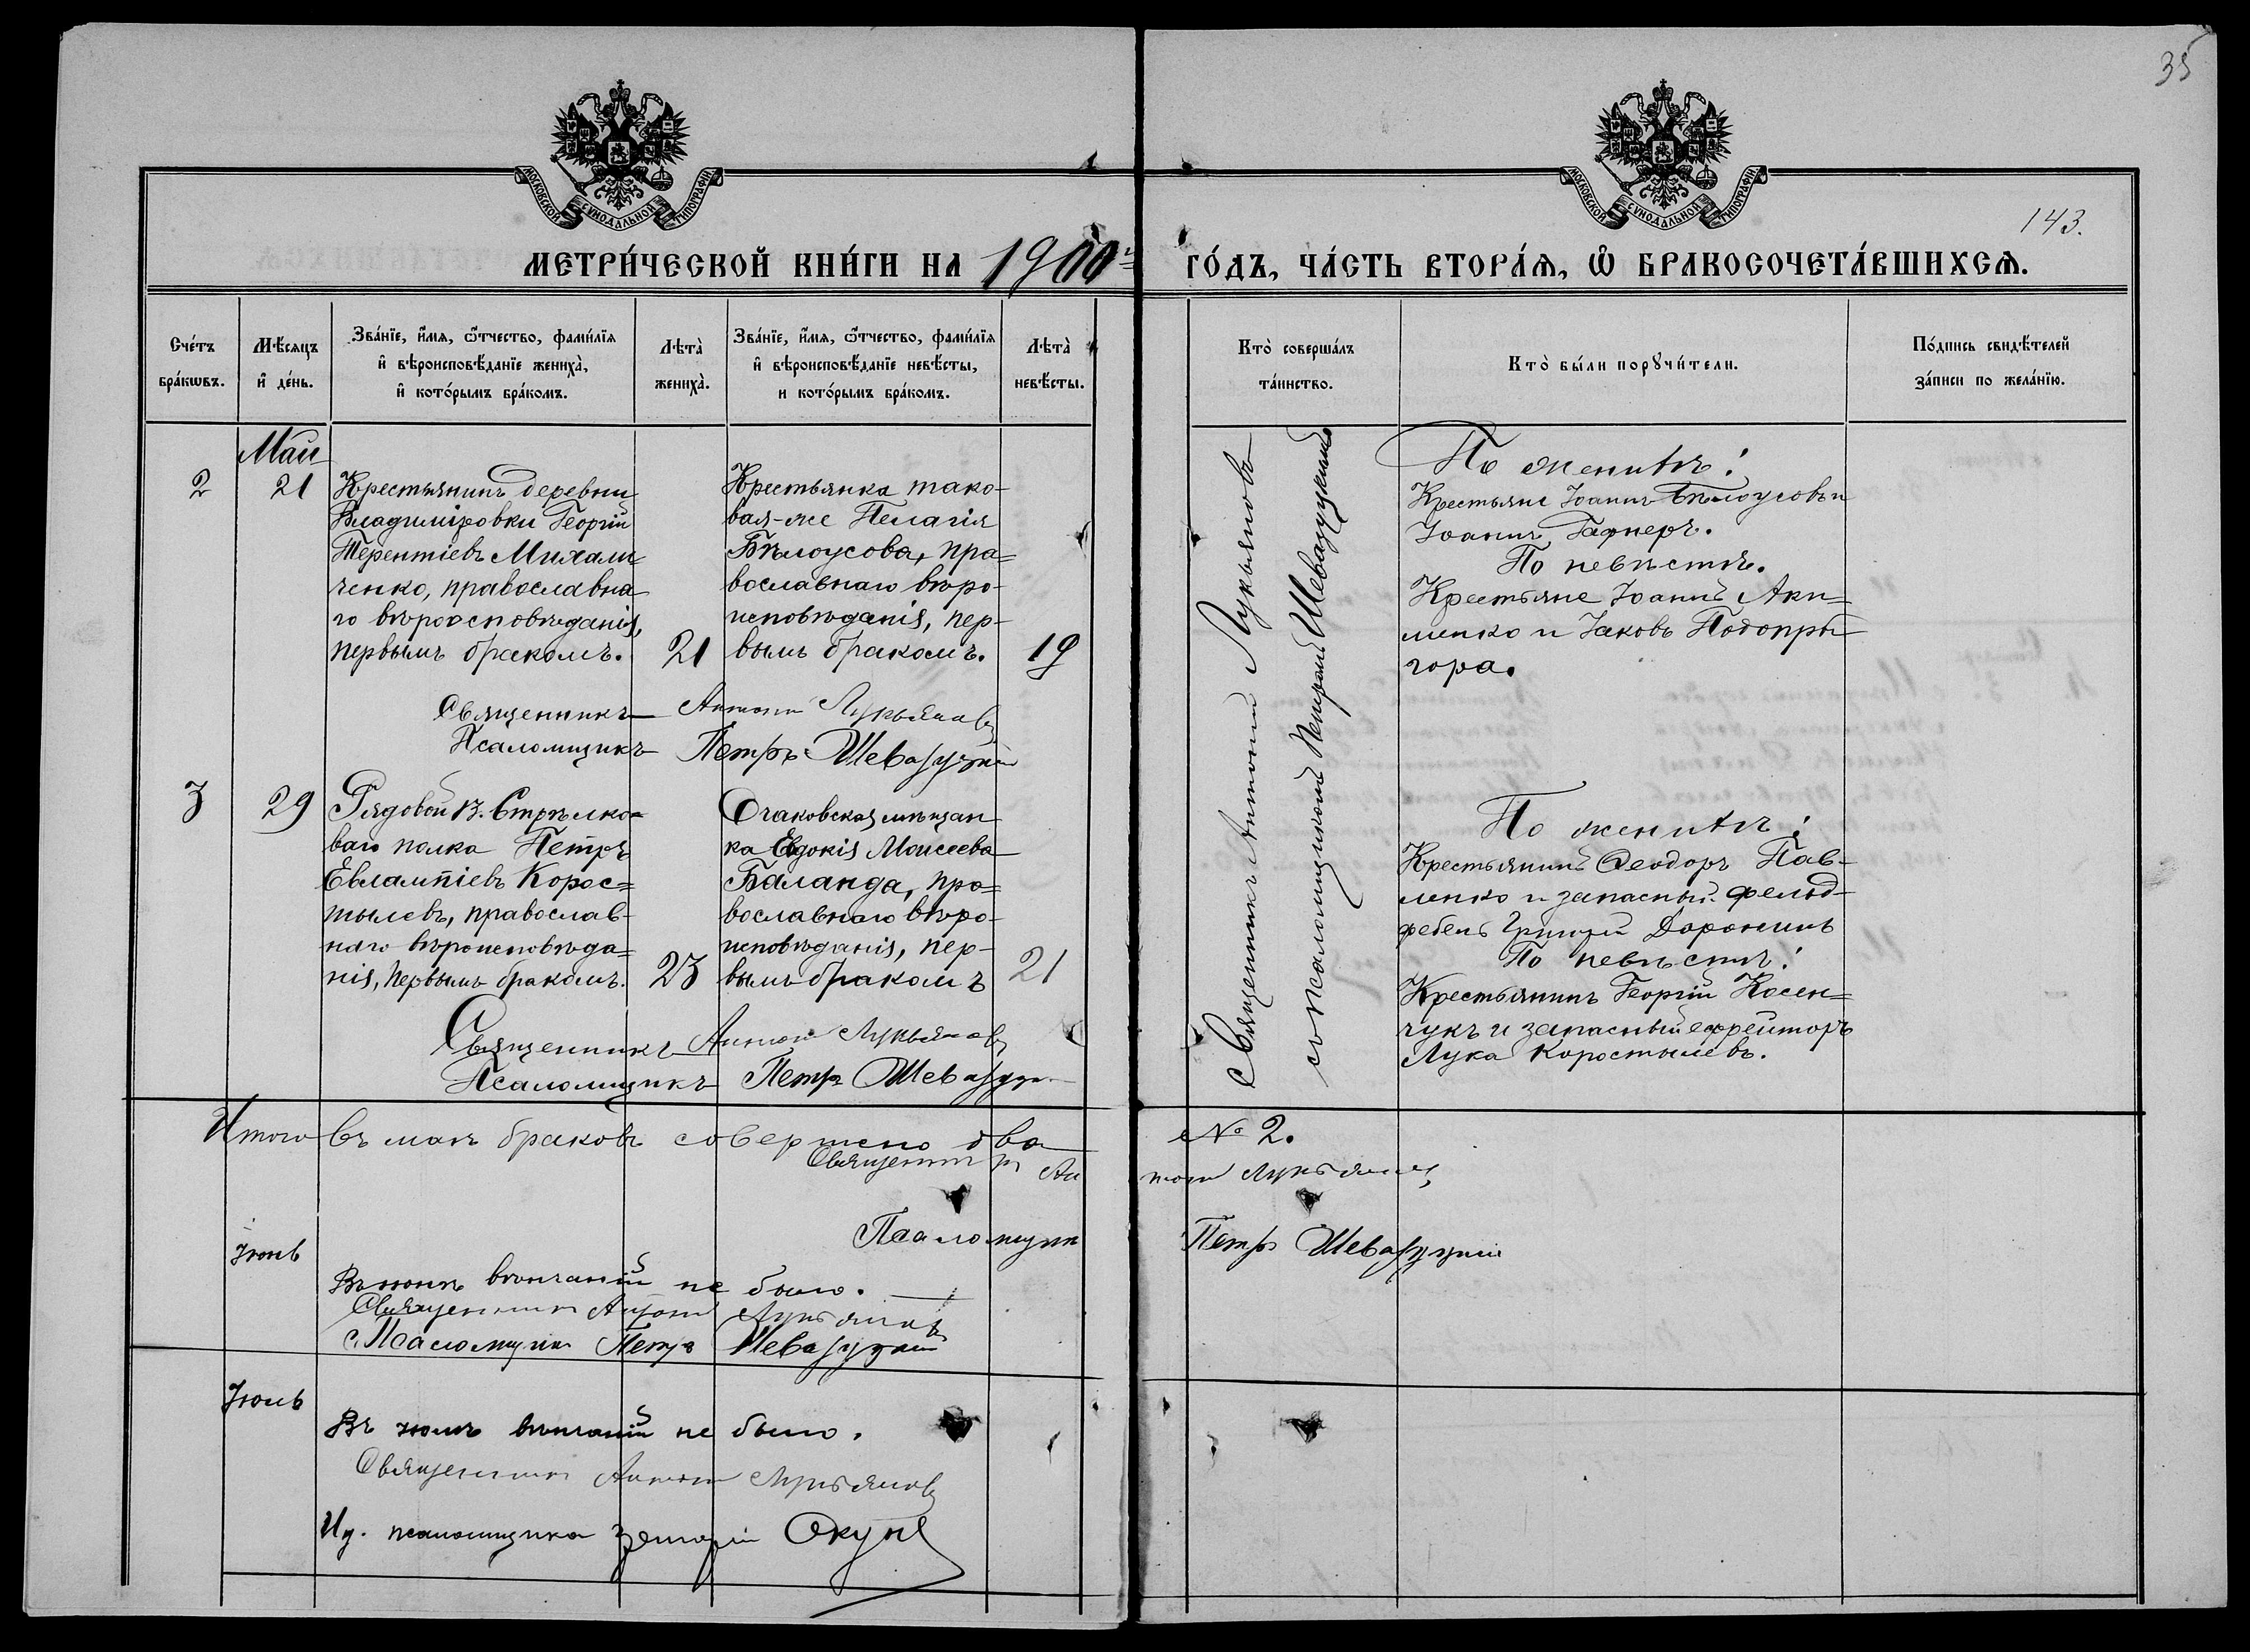 35
МОСКОВСКОЙ СѴНОДАЛЬНОЙ ТИПОГРАФІИ
МОСКОВСКОЙ СѴНОДАЛЬНОЙ ТИПОГРАФІИ
143.
МЕТРИ́ЧЕСКОЙ КНИ́ГИ НА 1900й
ГО́ДЪ, ЧА́СТЬ ВТОРА́Ѧ, Ѽ БРАКОСОЧЕТА́ВШИХСѦ.
Сче́тъ бра́кѡвъ.
Мѣ́сяцъ и҆ де́нь.
Зва́нїе, и҆́мя, ѻ҆́тчество, фами́лїя и҆ вѣроисповѣ́данїе жениха̀, и҆ кото́рымъ бра́комъ.
Лѣта̀ жениха̀.
Зва́нїе, и҆́мя, ѻ҆́тчество, фами́лїя и҆ вѣроисповѣ́данїе невѣ́сты, и кото́рымъ бра́комъ.
Лѣта̀ невѣ́сты.
Кто̀ соверша́лъ та́инство.
Кто̀ бы́ли порꙋчи́тели.
По́дпись свидѣ́телей за́писи по жела́нїю.
Май
2
21
Крестьянинъ деревни
Владиміровки Георгій
Терентіевъ Михаль
ченко, православна
го вѣроисповѣданія,
первымъ бракомъ.
21
Крестьянка тако-
вая-же Пелагія
Бѣлоусова, пра=
вославнаго вѣро-
исповѣданія, пер-
вымъ бракомъ.
19
Священникъ Антоній Лукьяновъ
Псаломщикъ Петръ Шевазуцкій
Священникъ Антоній Лукьяновъ
съ псаломщикомъ Петромъ Шевазуцкимъ
По женихѣ:
Крестьяне Іоаннъ Бѣлоусовъ и
Іоаннъ Гафнеръ.
По невѣстѣ.
Крестьяне Іоаннъ Аки=
менко и Іаковъ Подопри
гора.
3
29
Рядовой 13. Стрѣлко=
ваго полка Петръ
Евлампіевъ Корос=
тылевъ, православ-
наго вѣроисповѣда=
нія, первымъ бракомъ.
23
Очаковская мѣщан
ка Евдокія Моисеева
Баланда, пра=
вославнаго вѣро-
исповѣданія, пер-
вымъ бракомъ
21
Священникъ Антоній Лукьяновъ
Псаломщикъ Петръ Шевазуцкій
По женихѣ:
Крестьянинъ Ѳеодоръ Пав-
ленко и запасный фельд-
фебель Григорій Доронинъ
По невѣстѣ:
Крестьянинъ Георгій Косен=
чукъ и запасный ефрейторъ
Лука Коростылевъ.
Итого въ маѣ браковъ совершено два № 2.
Священникъ Антоній Лукьяновъ
Псаломщикъ Петръ Шевазуцкій
Іюнь
Въ іюнѣ вѣнчаній не было.
Священникъ Антоній Лукьяновъ
Псаломщикъ Петръ Шевазуцкій
Іюль
Въ іюлѣ вѣнчаній не было.
Священникъ Антоній Лукьяновъ
И. д. псаломщика Окунь